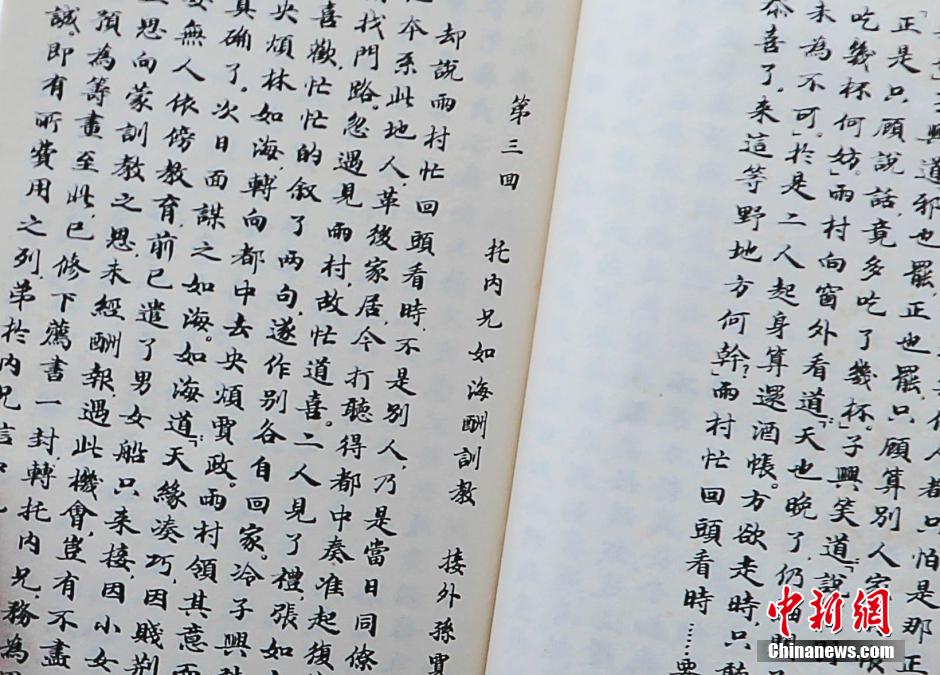 人都只怕是那正
興道邪也罷,正也罷,只顧算別人家
「正是只顧說話,竟多吃了幾杯。」子興笑道:「說
吃幾杯何妨。」雨村向窗外看道:「天也晚了,仍
未為不可。」於是二人起身算還酒帳。方欲走時,只聽
恭喜了,来這等野地方何幹?」雨村忙回頭看時……要
第三回 托内兄如海酬訓教 接外孫賈
却說雨村忙回頭看時,不是別人,乃是當日同僚
本系此地人,革後家居,今打聽得都中奏准起復
找門路,忽遇見雨村,故忙道喜。二人見了禮,張如
喜歡,忙忙的叙了兩句,遂作別各自回家。冷子興
央煩林如海,轉向都中去央煩賈政。雨村領其意而
真确了。次日面謀之如海。如海道:「天緣凑巧,因賤荆
無人依傍教育,前已遣了男女船只来接,因小女
思向蒙訓教之恩,未經酬報,遇此機會,豈有不盡
預為籌畫至此,已修下薦書一封,轉托内兄務為
誠,即有所費用之列,弟於内兄信中
中新網
Chinanews.com